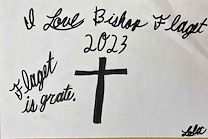 I Love Bishop Flaget
2023
Flaget
is grate.
Lola